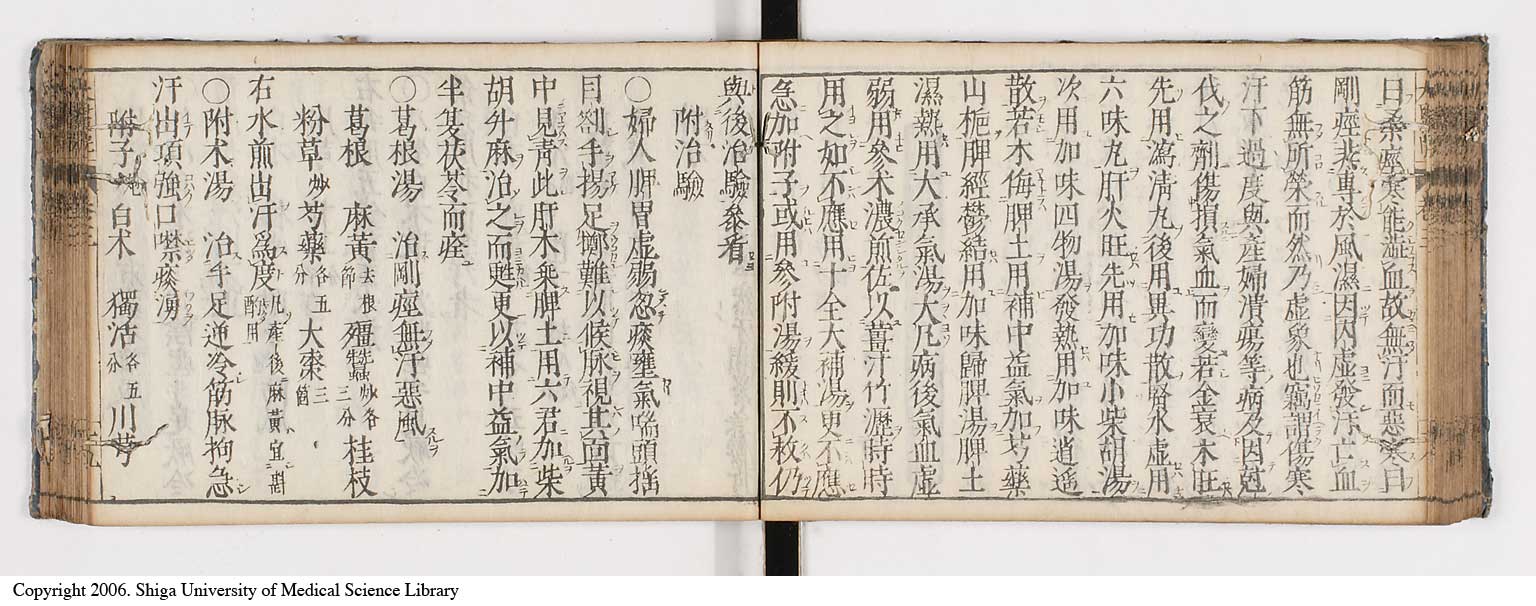 曰柔痙寒能澁血故無汗而惡寒曰
剛痙非專於風濕因内虛發汗亡血
筋無所榮而然乃虛象也竊謂傷寒
汗下過度與產婦潰瘍等病及因尅
伐之劑傷損氣血而變若金衰木旺
先用瀉淸丸後用異功散腎水虛用
六味丸肝火旺先用加味小柴胡湯
次用加味四物湯發熱用加味逍遙
散若木侮脾土用補中益氣加芍藥
山梔脾經鬱結用加味歸脾湯脾土
濕熱用大承氣湯大凡病後氣血虛
弱用參朮濃煎佐以薑汁竹瀝時時
用之如不應用十全大補湯更不應
急加附子或用參附湯緩則不救仍
與後治驗參看
附治驗
○婦人脾胃虛弱忽痰壅氣喘頭揺
目劄手揚足擲難以候脉視其面黃
中見靑此肝木乘脾土用六君加柴
胡升麻治之而甦更以補中益氣加
半夏茯苓而痊
○葛根湯 治剛痙無汗惡風
葛根 麻黃去根節 殭蠶炒各三分 桂枝
粉草炒 芍藥各五分 大棗三箇
右水煎出汗爲度 凡產後麻黃宜斟酌用
○附朮湯 治手足逆冷筋脉拘急
汗出項強口噤痰湧
附子炮 白朮 獨活各五分 川芎
Copyright 2006. Shiga University of Medical Science Library